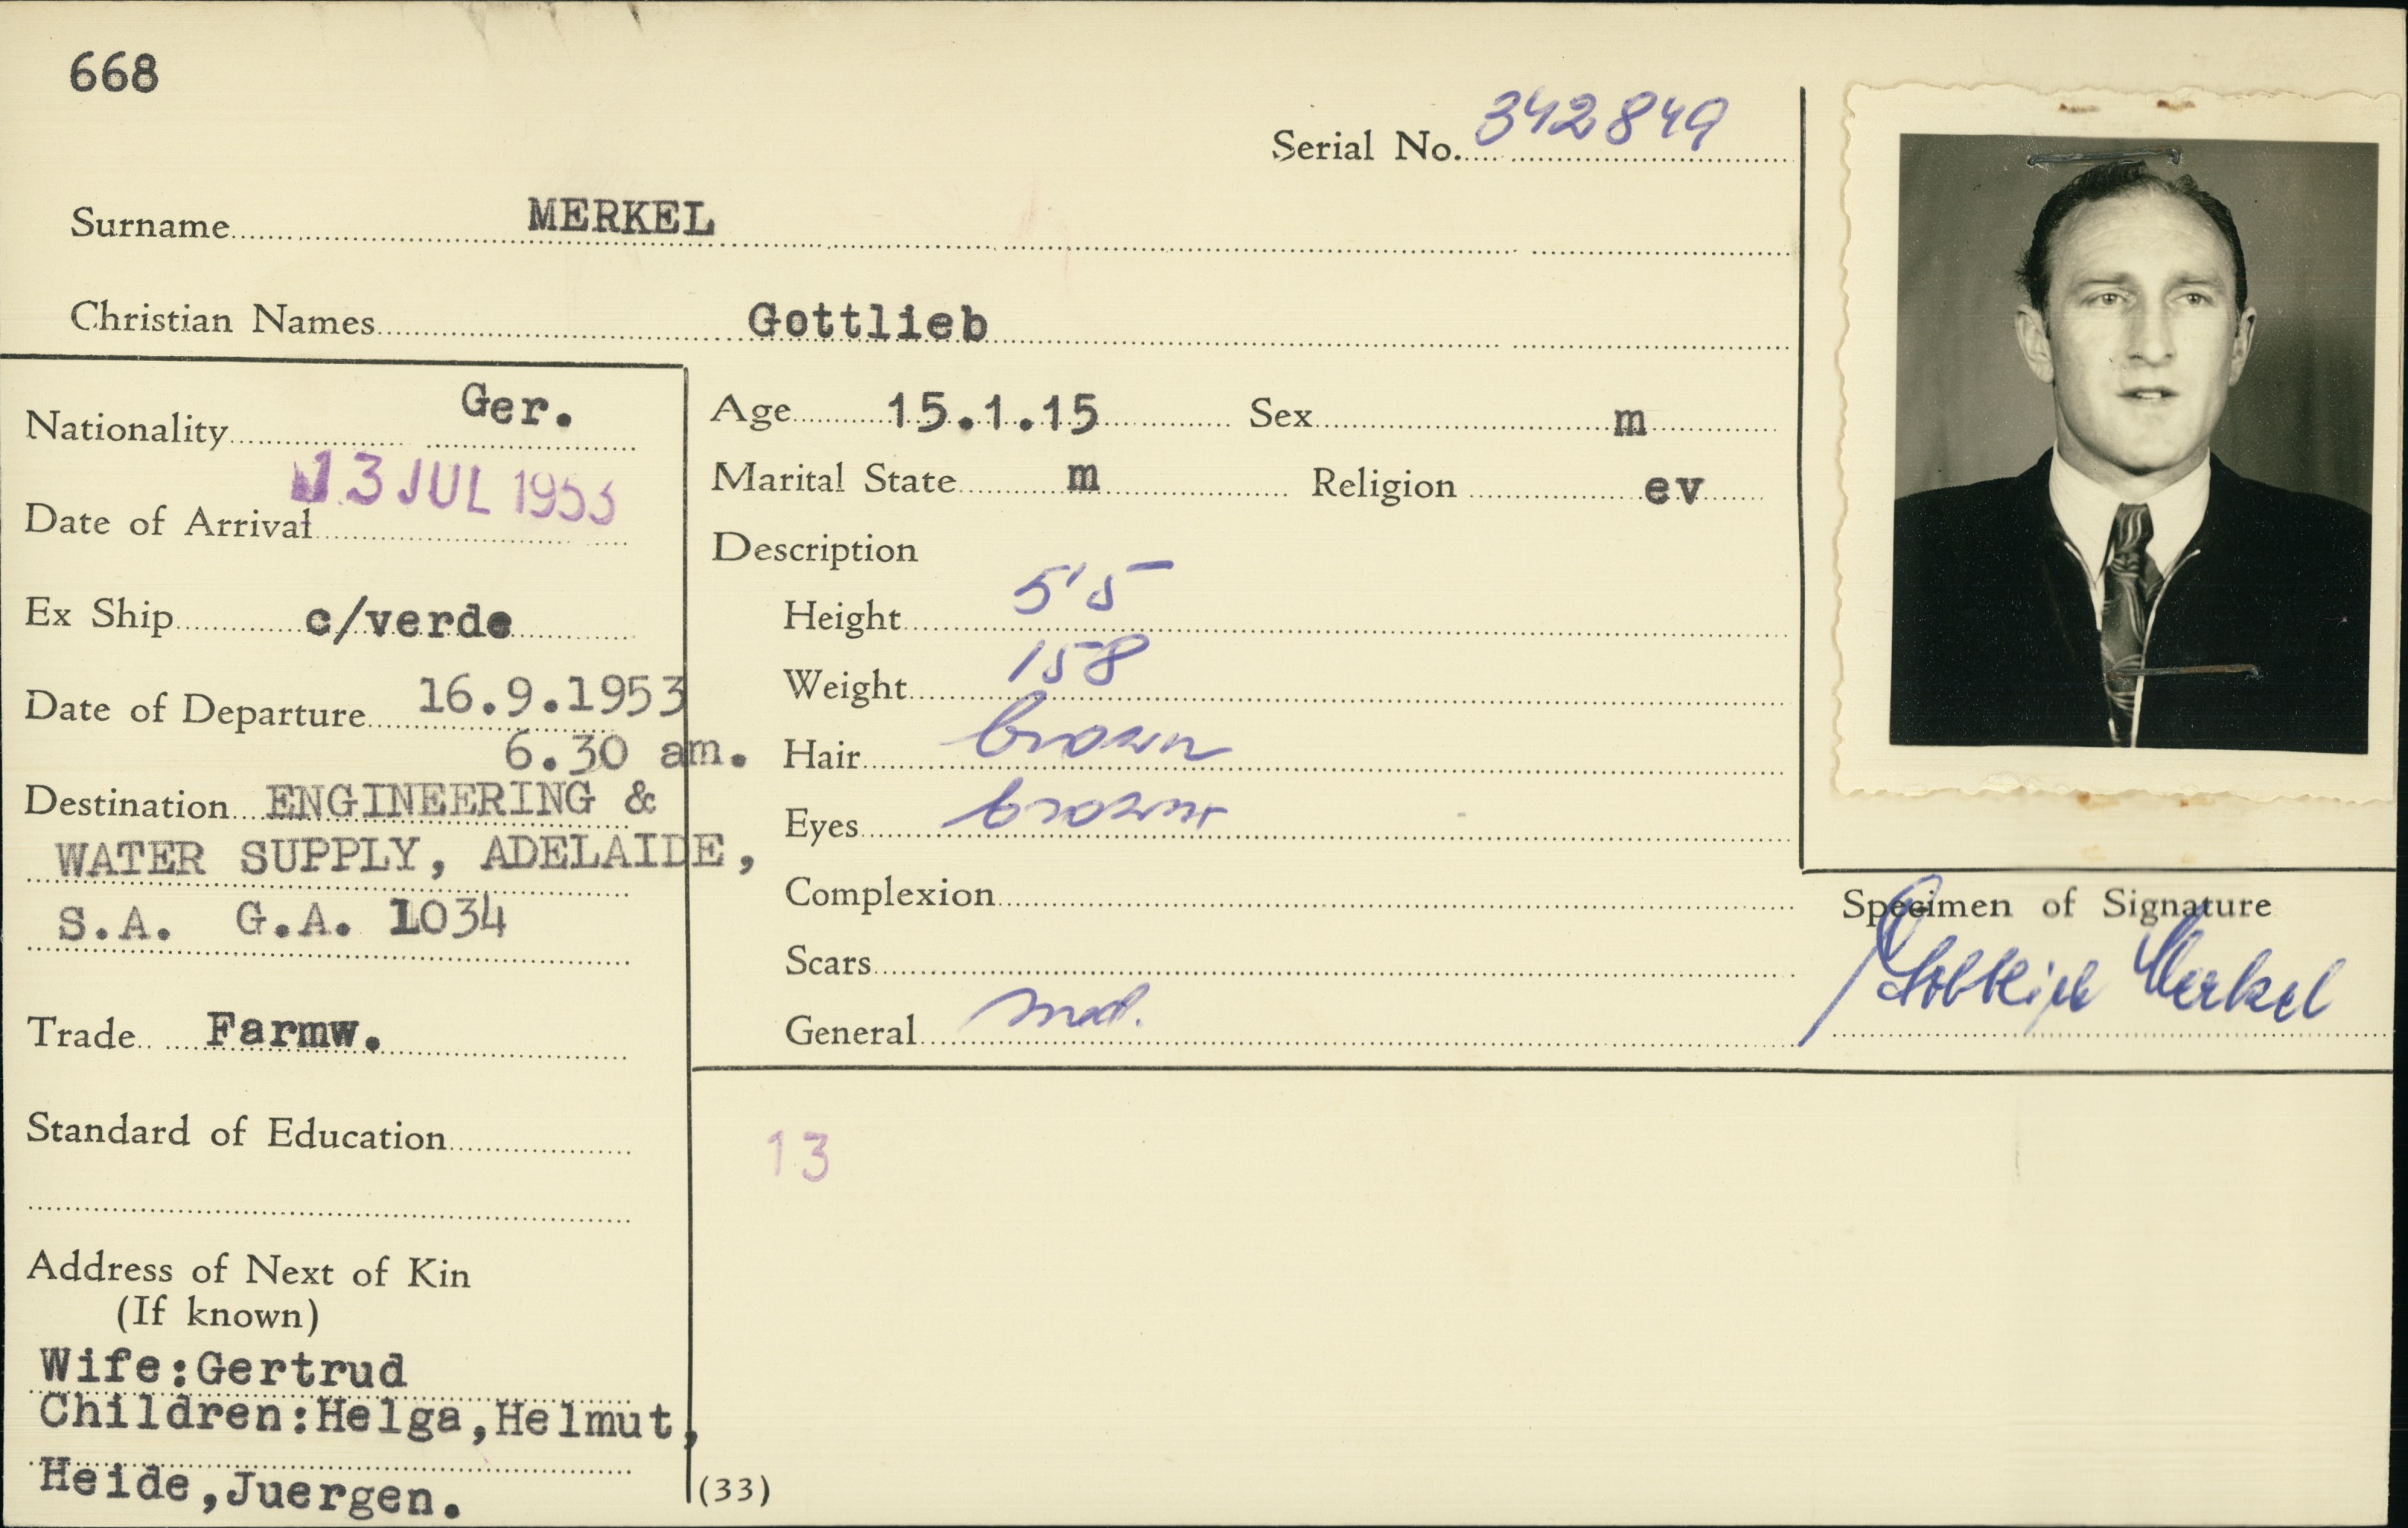 668
Serial No. 342849
Surname MERKEL
Christian Names Gottlieb
Nationality Ger.
Date of Arrival 13 JUL 1953
Ex Ship c/verde
Date of Departure 16.9.1953
6.30 am.
Destination ENGINEERING &
WATER SUPPLY, ADELAIDE,
S.A. G.A. 1034
Trade Farmw.
Standard of Education
Address of Next of Kin
(If known)
Wife:Gertrud
Children:Helga,Helmut,
Heide,Juergen.
Age 15.1.15 Sex m
Marital State m Religion ev
Description
Height 5'5
Weight 158
Hair brown
Eyes brown
Complexion
Scars
General med.
13
(33)
Specimen of Signature
Gottlieb Merkel